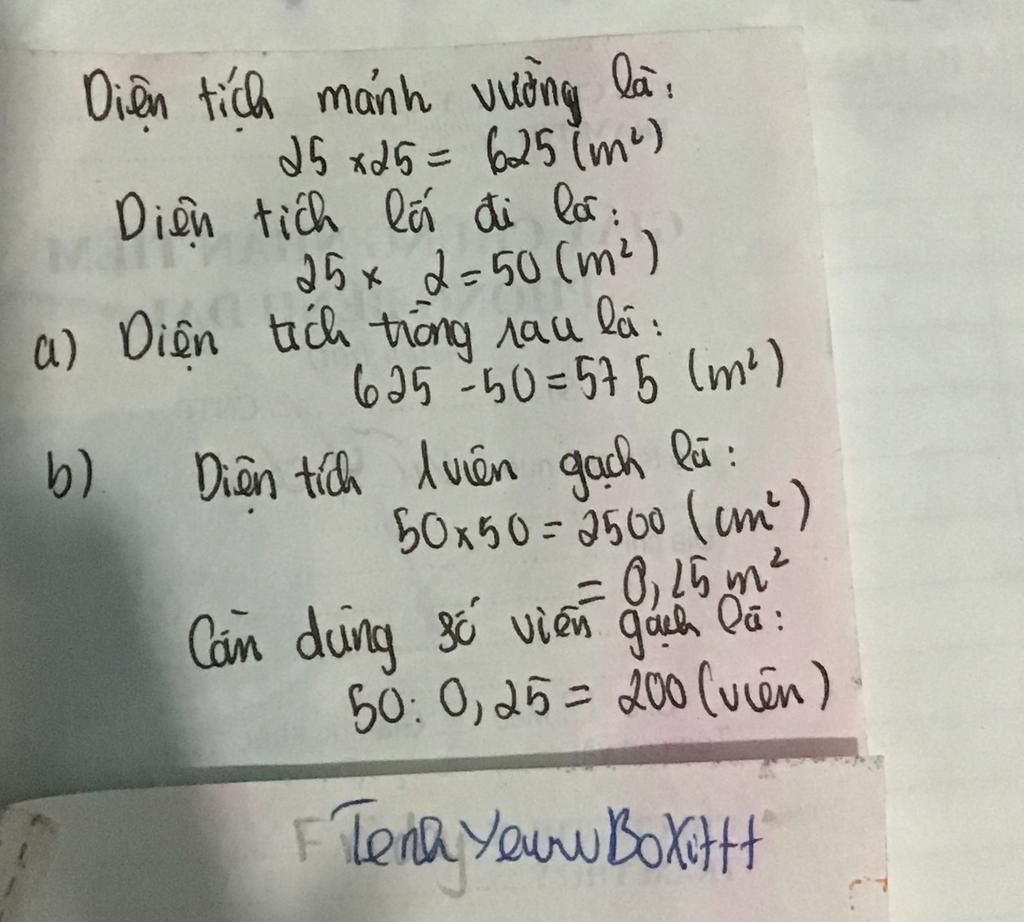 Diện tích mảnh vường là:
25 x 25 = 625 (m²)
Diện tích lối đi là:
25 x 2 = 50 (m²)
a) Diện tích trồng rau là:
625 - 50 = 575 (m²)
b) Diện tích 1 viên gạch là:
50 x 50 = 2500 (cm²)
= 0,25 m²
Cần dùng số viên gạch là:
50 : 0,25 = 200 (viên)
TenaYeuwBoXittt